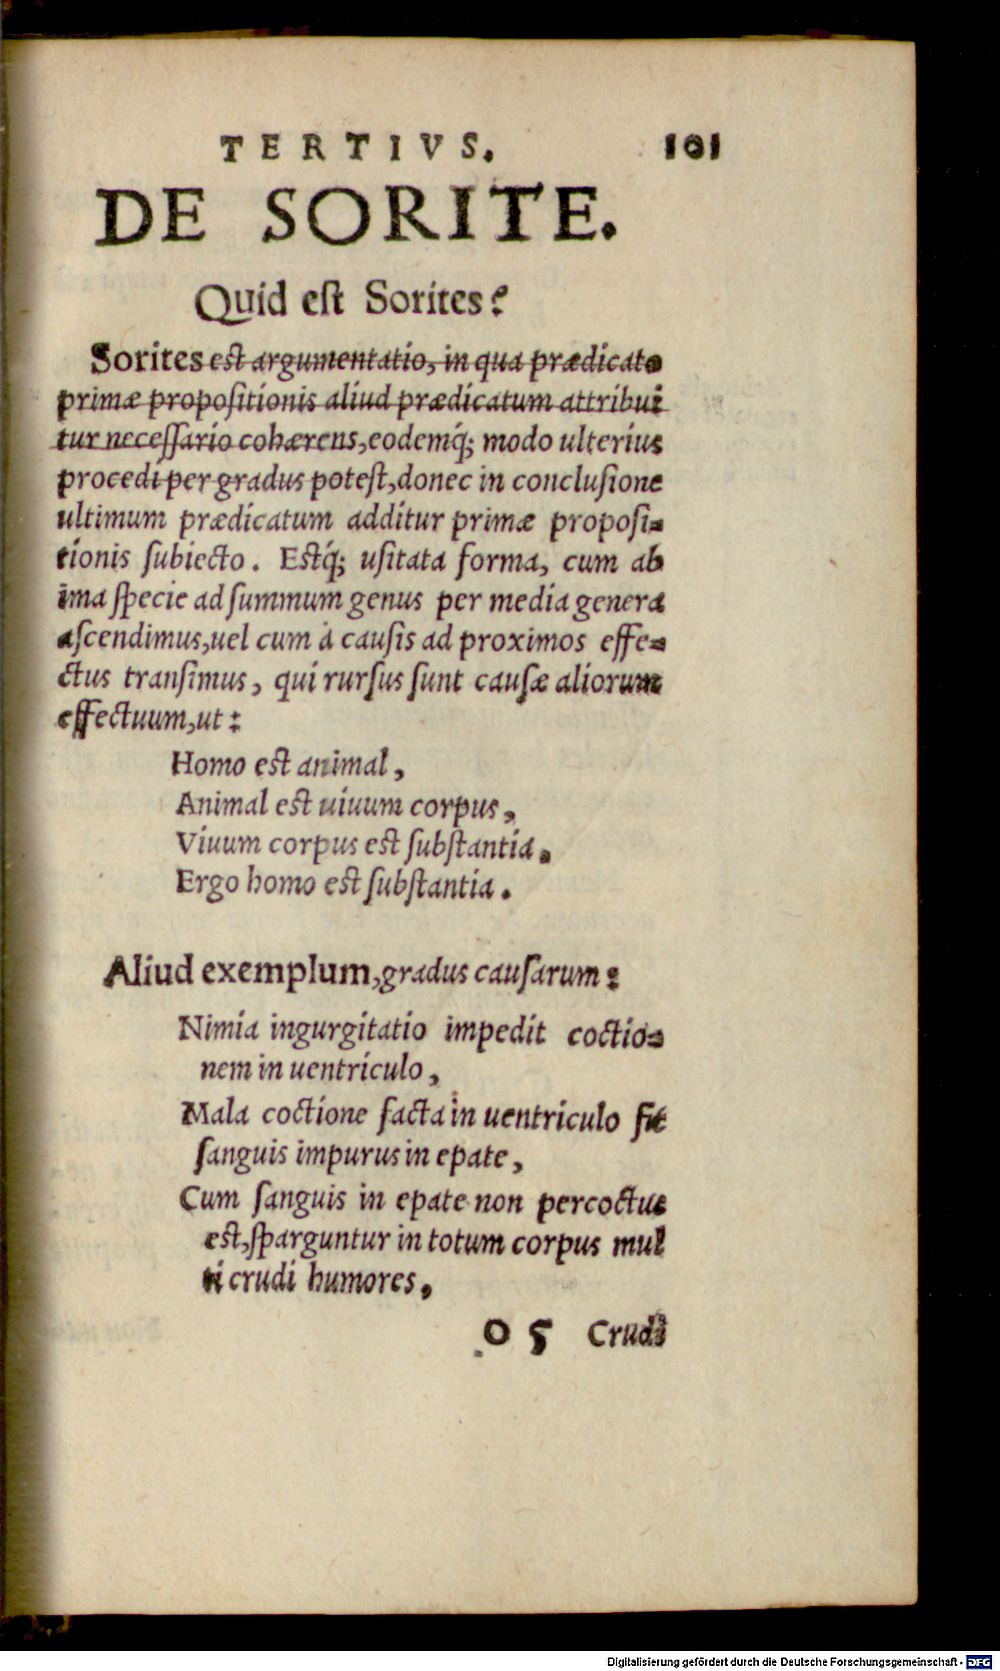 TERTIVS. 101
DE SORITE.
Quid est Sorites?
Sorites est argumentatio, in qua prædicato
primæ propositionis aliud prædicatum attribui
tur necessario cohærens, eodemq́; modo ulterius
procedi per gradus potest, donec in conclusione
ultimum prædicatum additur primæ proposi-
tionis subiecto. Estq́; usitata forma, cum ab
ima specie ad summum genus per media genera
ascendimus, uel cum à causis ad proximos effe-
ctus transimus, qui rursus sunt causæ aliorum
effectuum, ut:
Homo est animal,
Animal est uiuum corpus,
Viuum corpus est substantia.
Ergo homo est substantia.
Aliud exemplum, gradus causarum:
Nimia ingurgitatio impedit coctio-
nem in uentriculo,
Mala coctione facta in uentriculo fit
sanguis impurus in epate,
Cum sanguis in epate non percoctus
est, sparguntur in totum corpus mul
ti crudi humores,
O 5 Crudi
Digitalisierung gefördert durch die Deutsche Forschungsgemeinschaft - DFG